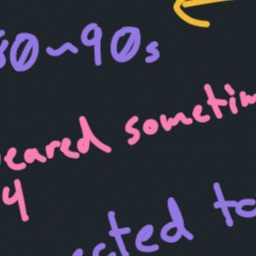 80~90s
eared sometim
4
ected to